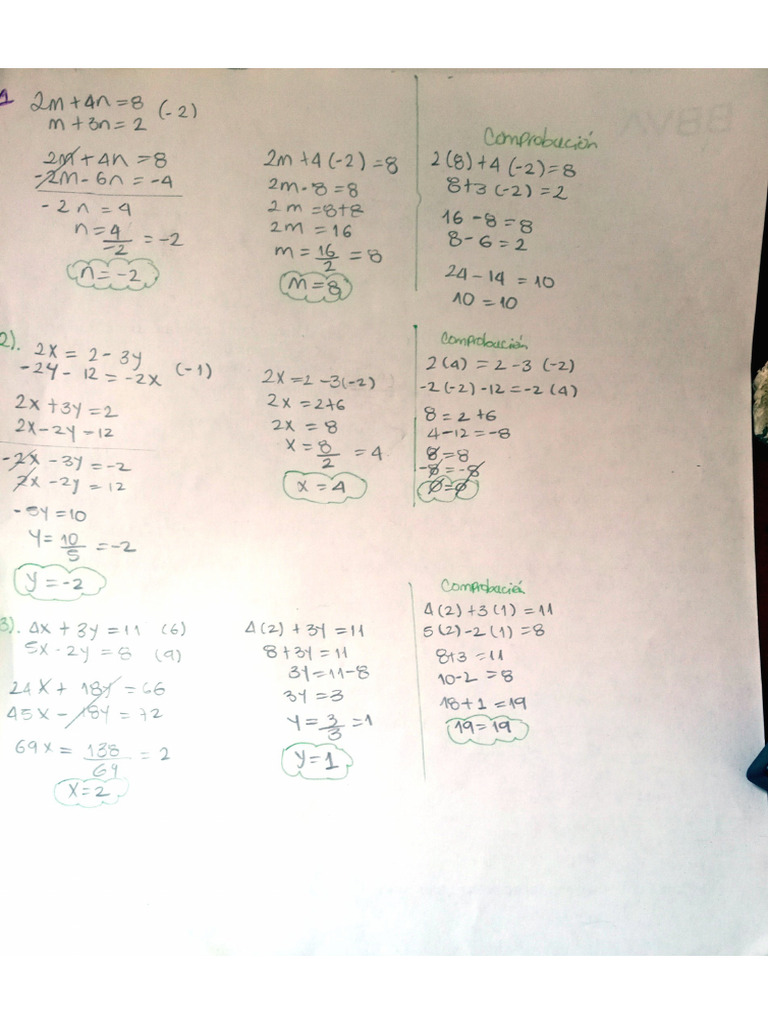 1
2m + 4n = 8 (-2)
m + 3n = 2
2m + 4n = 8
-2m - 6n = -4
-2n = 4
n = 4/-2 = -2
n = -2
2m + 4(-2) = 8
2m - 8 = 8
2m = 8+8
2m = 16
m = 16/2 = 8
m = 8
Comprobación
2(8) + 4(-2) = 8
8+3(-2) = 2
16 - 8 = 8
8 - 6 = 2
24 - 14 = 10
10 = 10
2).
2x = 2 - 3y
-2y - 12 = -2x (-1)
2x + 3y = 2
2x - 2y = 12
-2x - 3y = -2
2x - 2y = 12
-5y = 10
y = 10/5 = -2
y = -2
2x = 2 - 3(-2)
2x = 2+6
2x = 8
x = 8/2 = 4
x = 4
Comprobación
2(4) = 2 - 3(-2)
-2(-2) - 12 = -2(4)
8 = 2 + 6
4 - 12 = -8
8 = 8
-8 = -8
0 = 0
3).
4x + 3y = 11 (6)
5x - 2y = 8 (9)
24x + 18y = 66
45x - 18y = 72
69x = 138/69 = 2
x = 2
4(2) + 3y = 11
8 + 3y = 11
3y = 11 - 8
3y = 3
y = 3/3 = 1
y = 1
Comprobación
4(2) + 3(1) = 11
5(2) - 2(1) = 8
8+3 = 11
10 - 2 = 8
18 + 1 = 19
19 = 19
BBVA